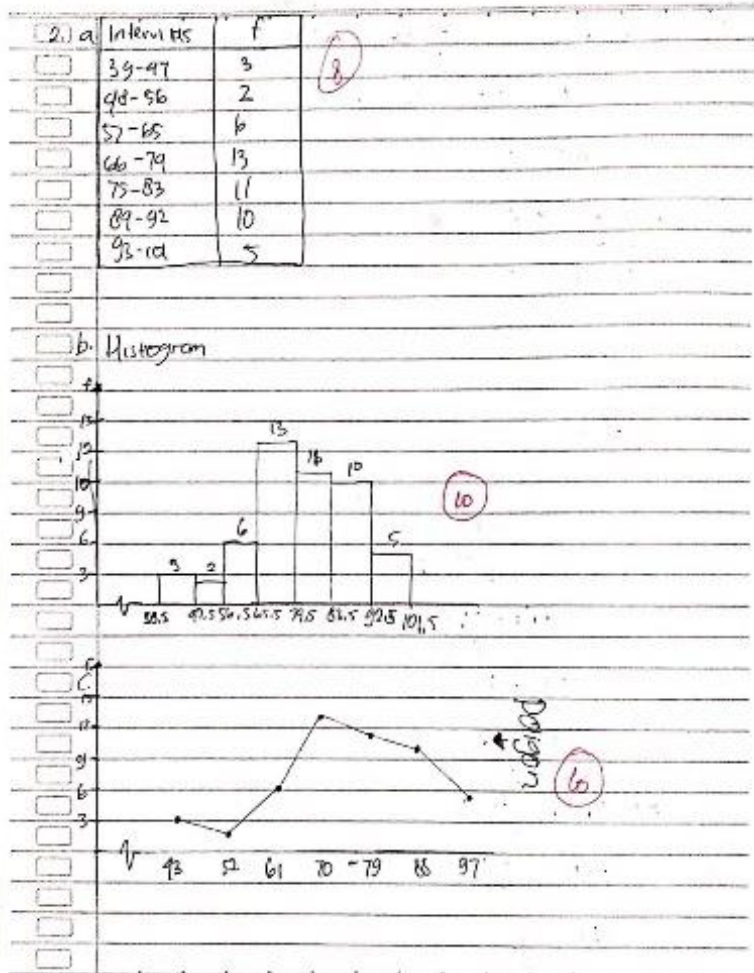 2.) a Intervals f
39-47 3
48-56 2
57-65 6
66-74 13
75-83 11
84-92 10
93-101 5
8
b. Histogram
f
13
12
10
9
6
3
3 2 6 13 11 10 5
38.5 47.5 56.5 65.5 74.5 83.5 92.5 101,5
10
C
f
12
9
6
3
43 52 61 70 79 88 97
Poligon
6